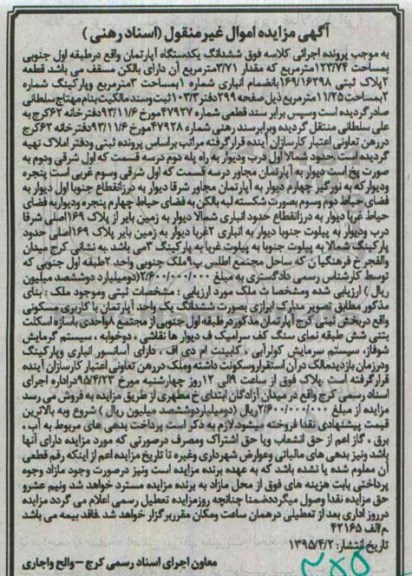 آگهی مزایده اموال غیرمنقول (اسناد رهنی)
به موجب پرونده اجرائی کلاسه فوق ششدانگ یکدستگاه آپارتمان واقع درطبقه اول جنوبی
بمساحت ۱۲۳/۷۴مترمربع که مقدار ۳/۷۱مترمربع آن دارای بالکن مسقف می باشد قطعه
۲پلاک ثبتی ۱۶۹/۱۶۳۹۸بانضمام انباری شماره ۱بمساحت ۳مترمربع وپارکینگ شماره
۲بمساحت۱۱/۲۵مترمربع ذیل صفحه ۲۹۹دفتر۱۰۳/۳ثبت وسندمالکیت بنام مهتاج سلطانی
صادرگردیده است وسپس برابر سند قطعی شماره ۴۷۹۲۷مورخ ۹۳/۱۱/۶دفترخانه ۶۲کرج به
علی سلطانی منتقل گردیده وبرابرسند رهنی شماره ۴۷۹۲۸مورخ ۹۳/۱۱/۶دفترخانه ۶۲کرج
دررهن تعاونی اعتبار کارسازان آینده قرارگرفته مراتب براساس پرونده ثبتی ودفتر املاک تهیه
گردیده است.حدود: شمالا اول درب ودیوار به راه پله دوم درسه قسمت که اول شرقی ودوم به
صورت پخ است دیوار به آپارتمان مجاور درسه قسمت که اول شرقی وسوم غربی است پنجره
ودیوارکه به نورگیر چهارم دیوار به آپارتمان مجاور شرقا دیوار به درزانقطاع جنوبا اول دیوار به
فضای حیاط دوم وسوم بصورت شکسته لبه بالکن به فضای حیاط چهارم پنجره ودیواربه فضای
حیاط غربا دیوار به درزانقطاع حدود انباری شمالا دیوار به زمین بایر از پلاک ۱۶۹اصلی شرقا
درب ودیوار به پیلوت جنوبا دیوار به انباری ۲غربا دیوار به زمین بایر پلاک ۱۶۹اصلی حدود
پارکینگ شمالا به پیلوت جنوبا به پیلوت غربا به پارکینگ ۳می باشد .به نشانی کرج میدان
والفجرخ فرهنگیان که ساحل مجتمع اطلس پ۹ملک جنوبی واحد ۲طبقه اول جنوبی که
توسط کارشناس رسمی دادگستری به مبلغ ۲/۶۰۰/۰۰۰/۰۰۰(دومیلیارد دوششصد میلیون
ریال ) ارزیابی شده ومشخصا ت ملک مورد ارزیابی : مشخصات ثبتی وموجود ملک : بنای
مذکور مطابق تصویر مدارک ابرازی بصورت ششدانگ یک واحد آپارتمان با کاربری مسکونی
واقع دربخش ثبتی کرج آپارتمان مذکوردرطبقه اول جنوبی از مجتمع ۸واحدی باسازه اسکلت
بتنی شش طبقه نمای سنگ کف سرامیک ف دیوار ها نقاشی ، دوخوابه ، سیستم گرمایش
شوفاژ، سیستم سرمایش کولرآبی ، کابینت ام دی اف ، دارای آسانسور انباری وپارکینگ
ودرزمان بازدیدمالک درآن استقرار وسکونت داشته وملک دررهن تعاونی اعتبار کارسازان آینده
قرارگرفته است پلاک فوق از ساعت ۹الی ۱۲ روز چهارشنبه مورخ ۹۵/۴/۲۳دراداره اجرای
اسناد رسمی کرج واقع در میدان آزادگان ابتدای خ مطهری از طریق مزایده به فروش می رسد
مزایده از مبلغ ۲/۶۰۰/۰۰۰/۰۰۰ریال (دومیلیاردوششصد میلیون ریال ) شروع وبه بالاترین
قیمت پیشنهادی نقدا فروخته میشود.لازم به ذکر است پرداخت بدهی های مربوط به آب ،
برق ، گاز اعم از حق انشعاب ویا حق اشتراک ومصرف درصورتی که مورد مزایده دارای آنها
باشد ونیز بدهی های مالیاتی وعوارض شهرداری وغیره تا تاریخ مزایده اعم از اینکه رقم قطعی
آن معلوم شده یا نشده باشد که به عهده برنده مزایده است ونیز درصورت وجود مازاد وجوه
پرداختی بابت هزینه های فوق از محل مازاد به برنده مزایده مسترد خواهد شد ونیم عشرو
حق مزایده نقدا وصول میگرددضمنا چنانچه روزمزایده تعطیل رسمی اعلام می گردد مزایده
درروز اداری بعد از تعطیلی درهمان ساعت ومکان مقرربرگزار خواهد شد .فاقد بیمه می باشد
م/الف ۴۲۱۶۵
تاریخ انتشار: ۱۳۹۵/۴/۲
معاون اجرای اسناد رسمی کرج - والح واجاری